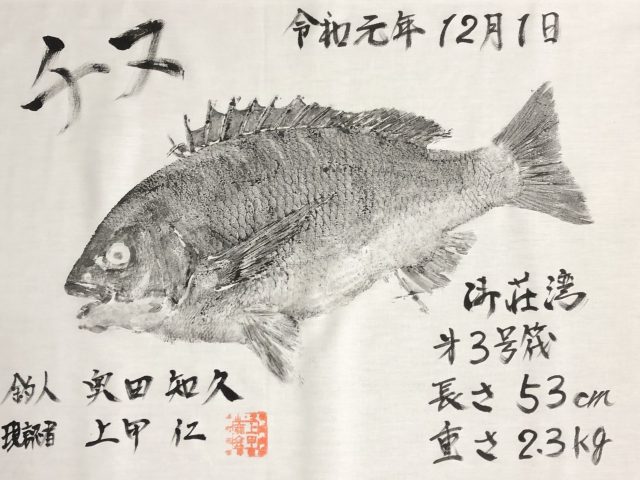 チヌ
令和元年 12月1日
御荘湾
才3号筏
長さ 53cm
重さ 2.3kg
釣人 奥田 知久
現認者 上甲 仁